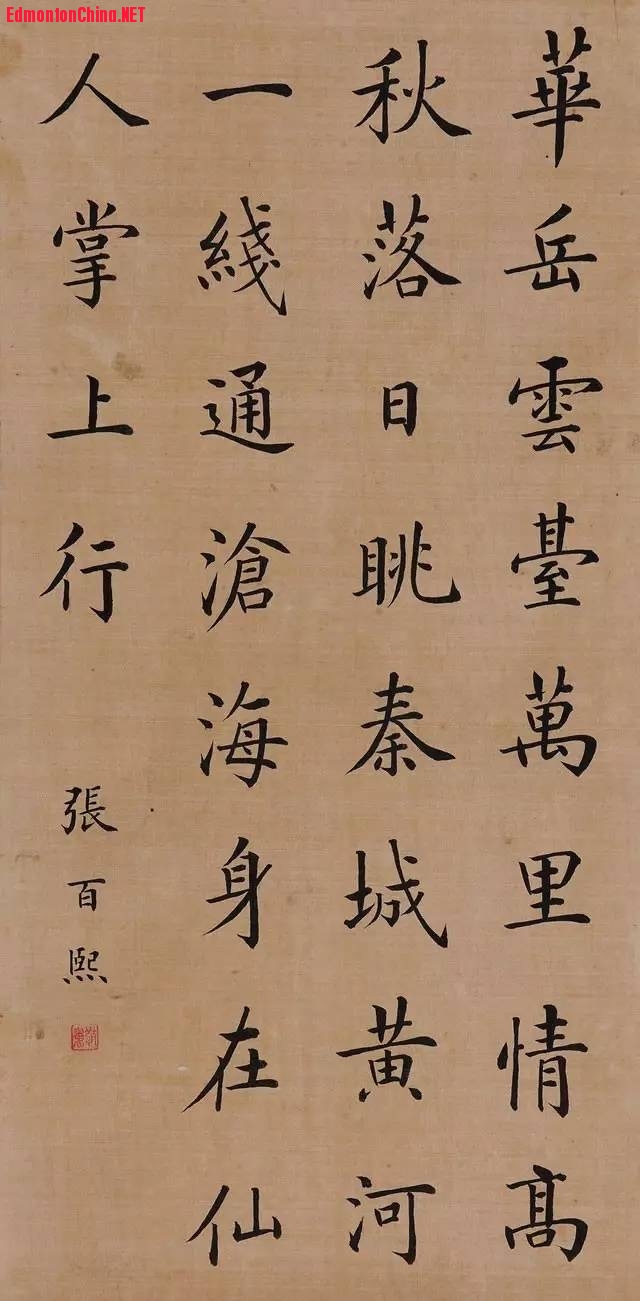 EdmontonChina.NET
華岳雲臺萬里情髙
秋落日眺秦城黄河
一綫通滄海身在仙
人掌上行
張百熙